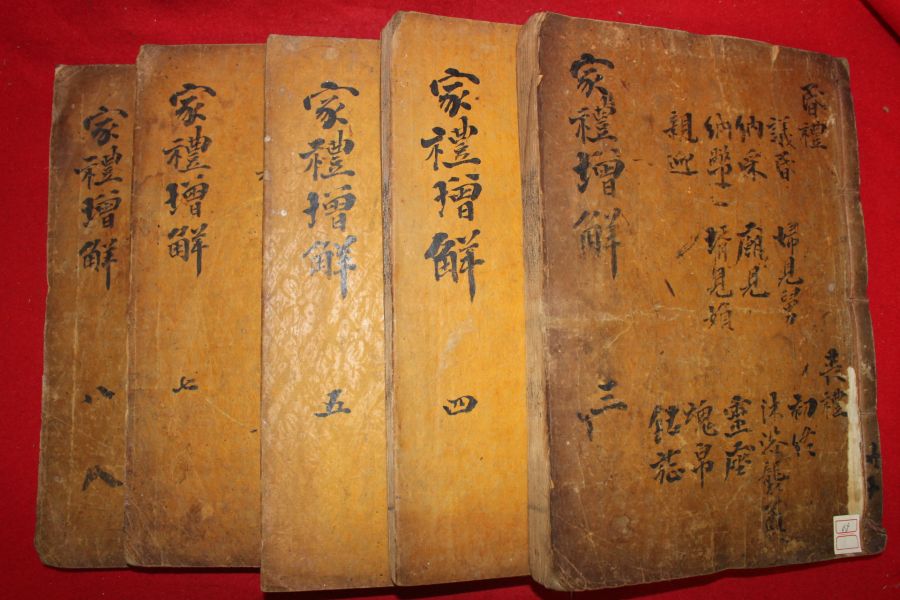 昏禮
議昏
納采
納幣
親迎
婦見舅
廟見
壻見婦
喪禮
初終
沐浴襲
靈座
魂帛
家禮增解
三
家禮增解
四
家禮增解
五
家禮增解
七
家禮增解
八
八